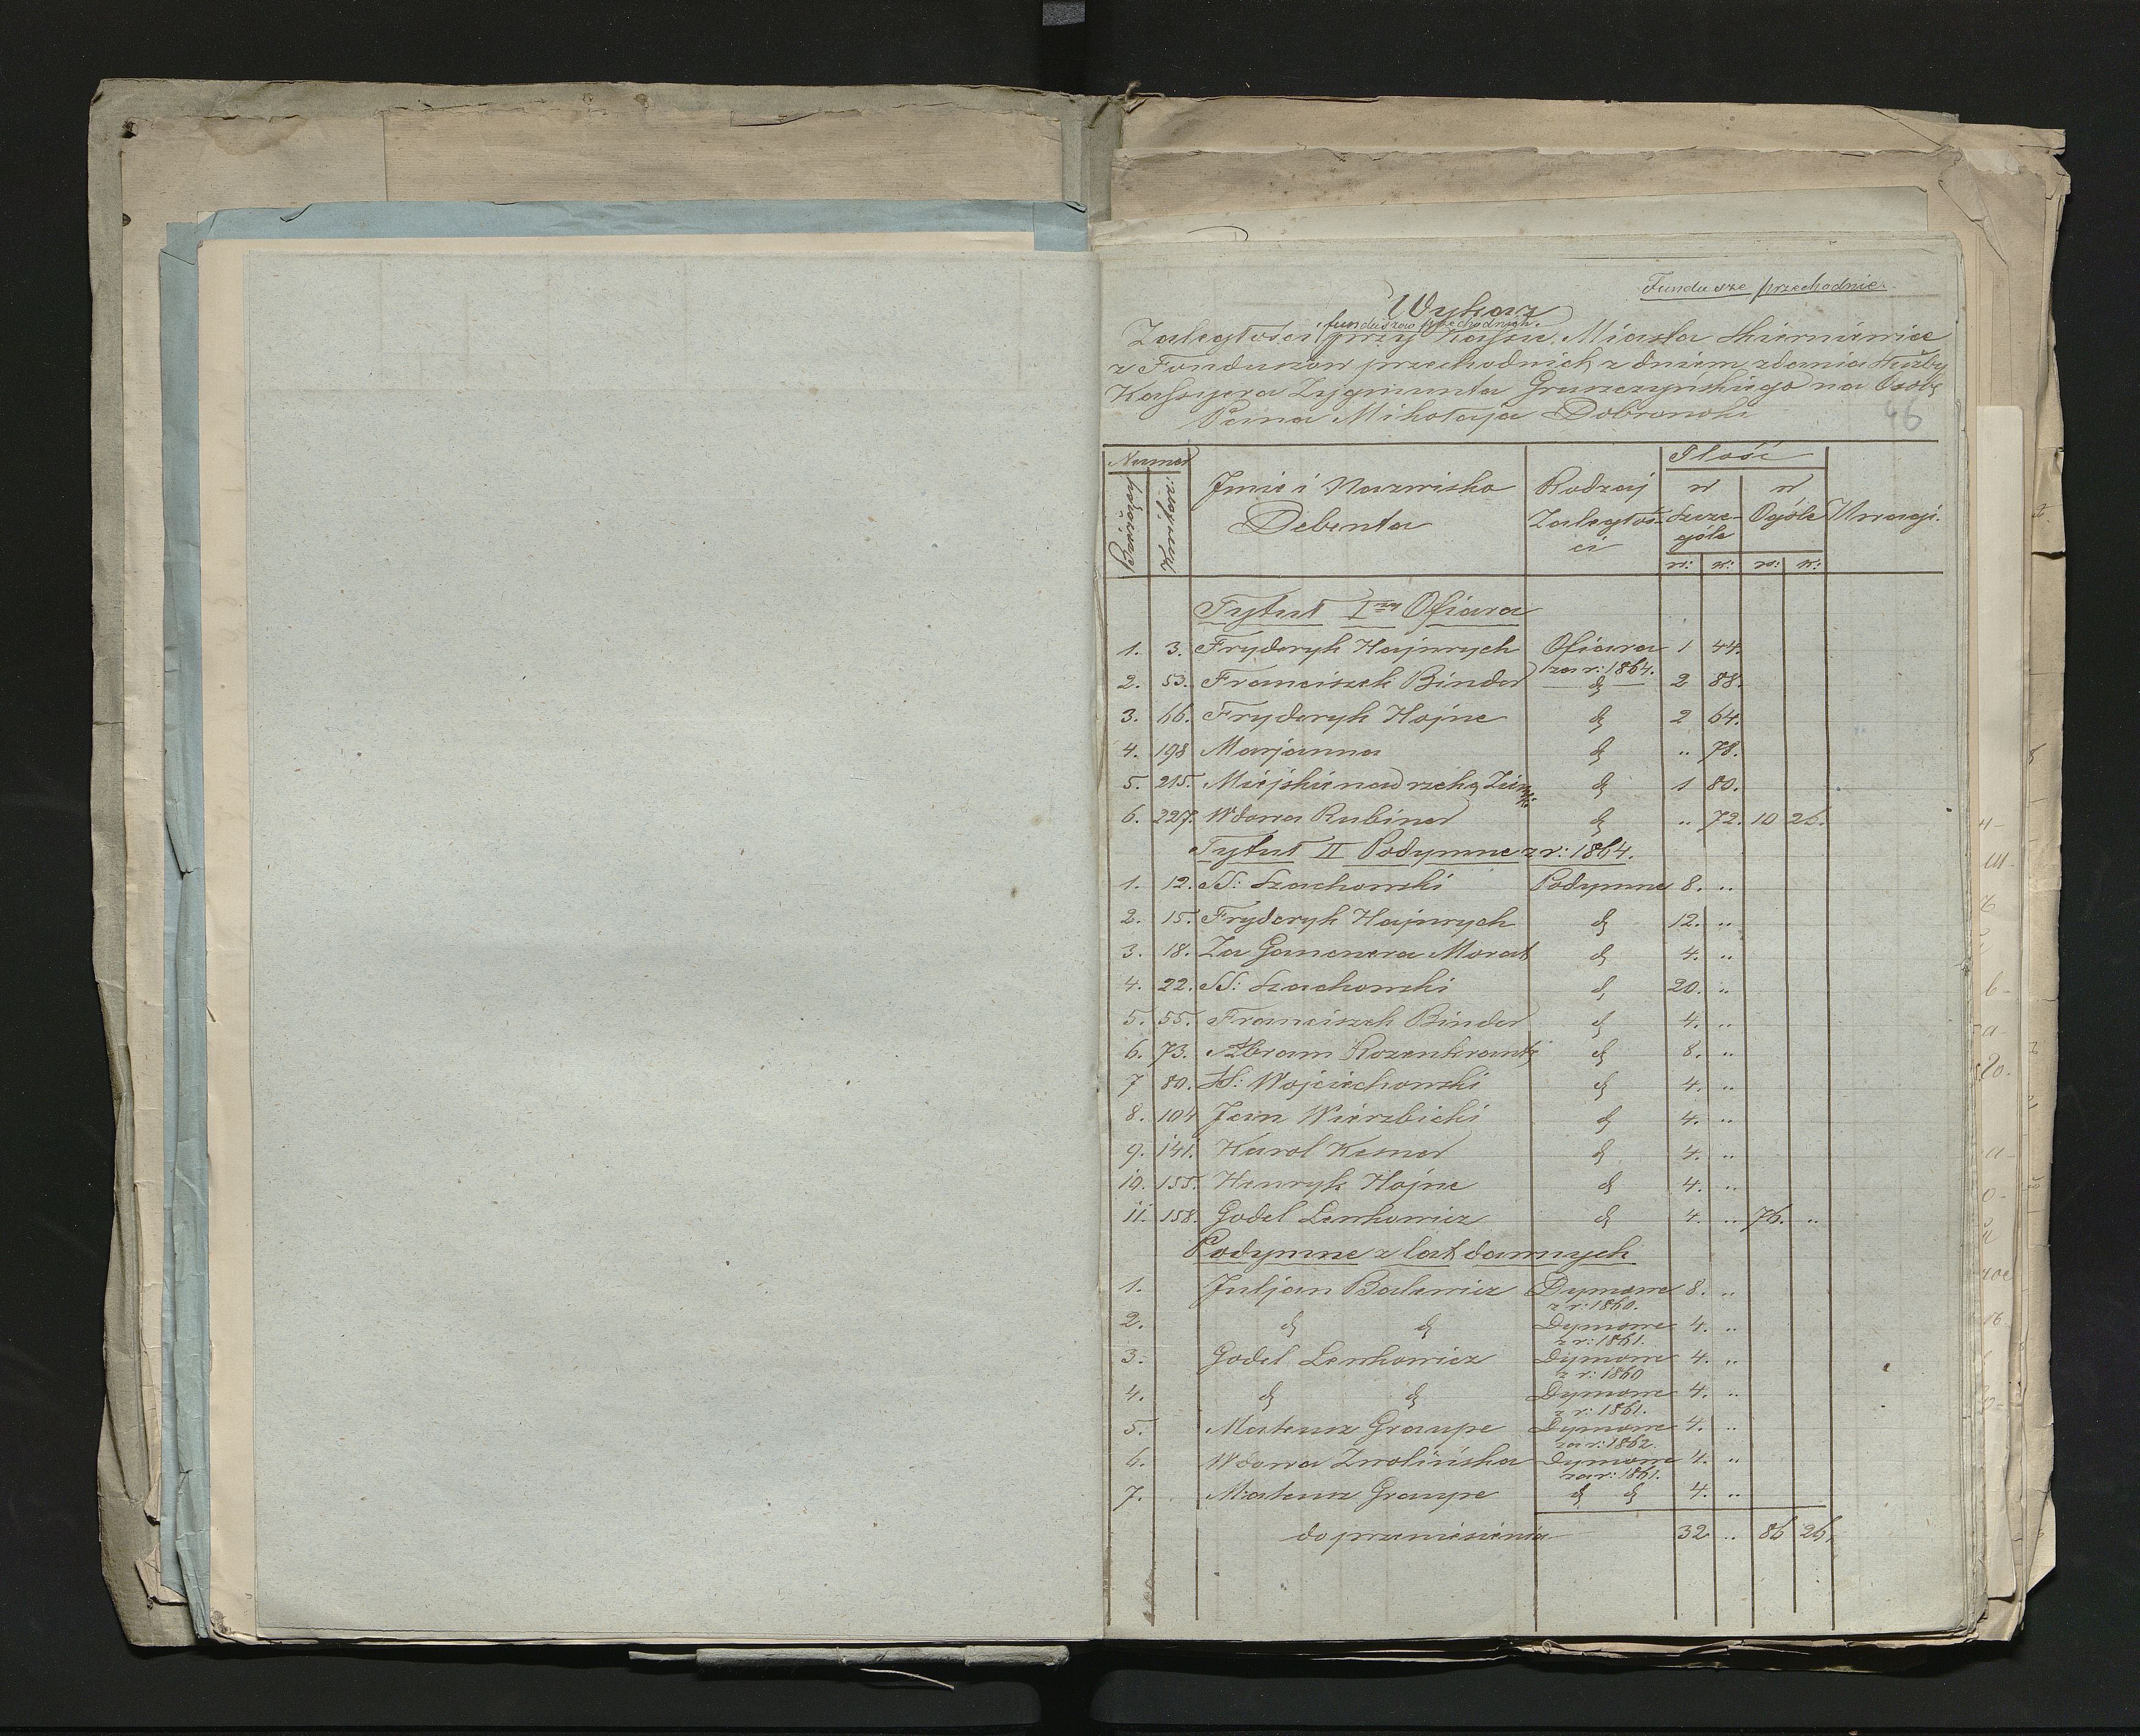 Fundusze przechodnie.
Wykaz
funduszow przechodnich.
Zaległości przy Kassie Miasta Skierniewice
z Funduszow przechodnich z dniem zdania służby
Kassyera Zygmunta Gruszczynskiego na Osobę
Pana Mikołaja Dobronoki
46
Numer Ilość
Bieżący Kwitar: Imie i Nazwisko Debenta Rodzaj Zaległości w Szczególe w Ogóle Uwagi.
rs: k: rs: k:
Tytuł I-szy Ofiara
1. 3. Fryderyk Hajnrych Ofiara za r: 1864. 1 44.
2. 53. Franciszek Binder d 2 88.
3. 66. Fryderyk Hojne d 2 64.
4. 198 Marjanna d " 78.
5. 215. Miejskie nad rzeką d 1 80.
6. 227. Wdowa Rubiner d " 72. 10 26.
Tytuł II Podymne z r: 1864.
1. 12. SS: Szachowski Podymne 8. "
2. 15. Fryderyk Hajnrych d 12. "
3. 18. Za Gamenera Morat d 4. "
4. 22. SS: Szachowski d 20. "
5. 55. Franciszek Binder d 4. "
6. 73. Abram Rozenkrantz d 8. "
7 80. SS: Wojciechowski d 4. "
8. 104 Jan Wierzbicki d 4. "
9. 141. Karol Kesner d 4. "
10. 155. Henryk Hojne d 4. "
11. 158. Godel Lenkowicz d 4. " 76. "
Podymne z lat dawnych
1. Juljan Balewicz Dymowe z r: 1860. 8. "
2. d d Dymowe z r: 1861. 4. "
3. Godel Lenkowicz Dymowe z r: 1860 4. "
4. d d Dymowe z r: 1861. 4. "
5. Mateusz Graupe Dymowe za r: 1862. 4. "
6. Wdowa Zwolińska Dymowe za r: 1861. 4. "
7. Mateusz Graupe d d 4. "
do przeniesienia 32 " 86 26.